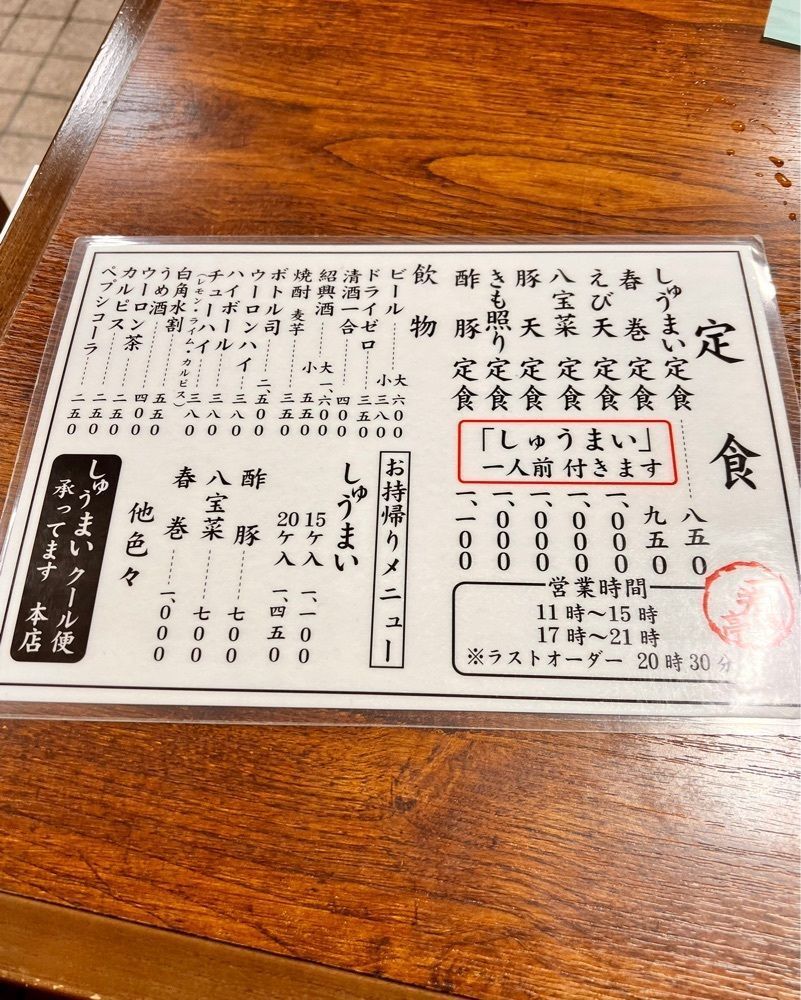 定食
しゅうまい定食 八五0
春巻定食 九五0
えび天定食 一、000
八宝菜定食 一、000
豚天定食 一、000
きも照り定食 一、000
酢豚定食 一、一00
「しゅうまい」
一人前 付きます
営業時間
11時〜15時
17時〜21時
※ラストオーダー 20時30分
飲物
ビール 大 六00
小 三八0
ドライゼロ 三五0
清酒一合 四00
紹興酒 大 一、六00
小 五五0
焼酎 麦芋 三五0
ボトル司 二、五00
ウーロンハイ 三八0
ハイボール 三八0
チューハイ 三八0
（レモン・ライム・カルピス）
白角水割 五五0
うめ酒 四00
ウーロン茶 二五0
カルピス 二五0
ペプシコーラ 二五0
お持帰りメニュー
しゅうまい
15ケ入 一、一00
20ケ入 一、四五0
酢豚 七00
八宝菜 七00
春巻 一、000
他色々
しゅうまいクール便
承ってます 本店